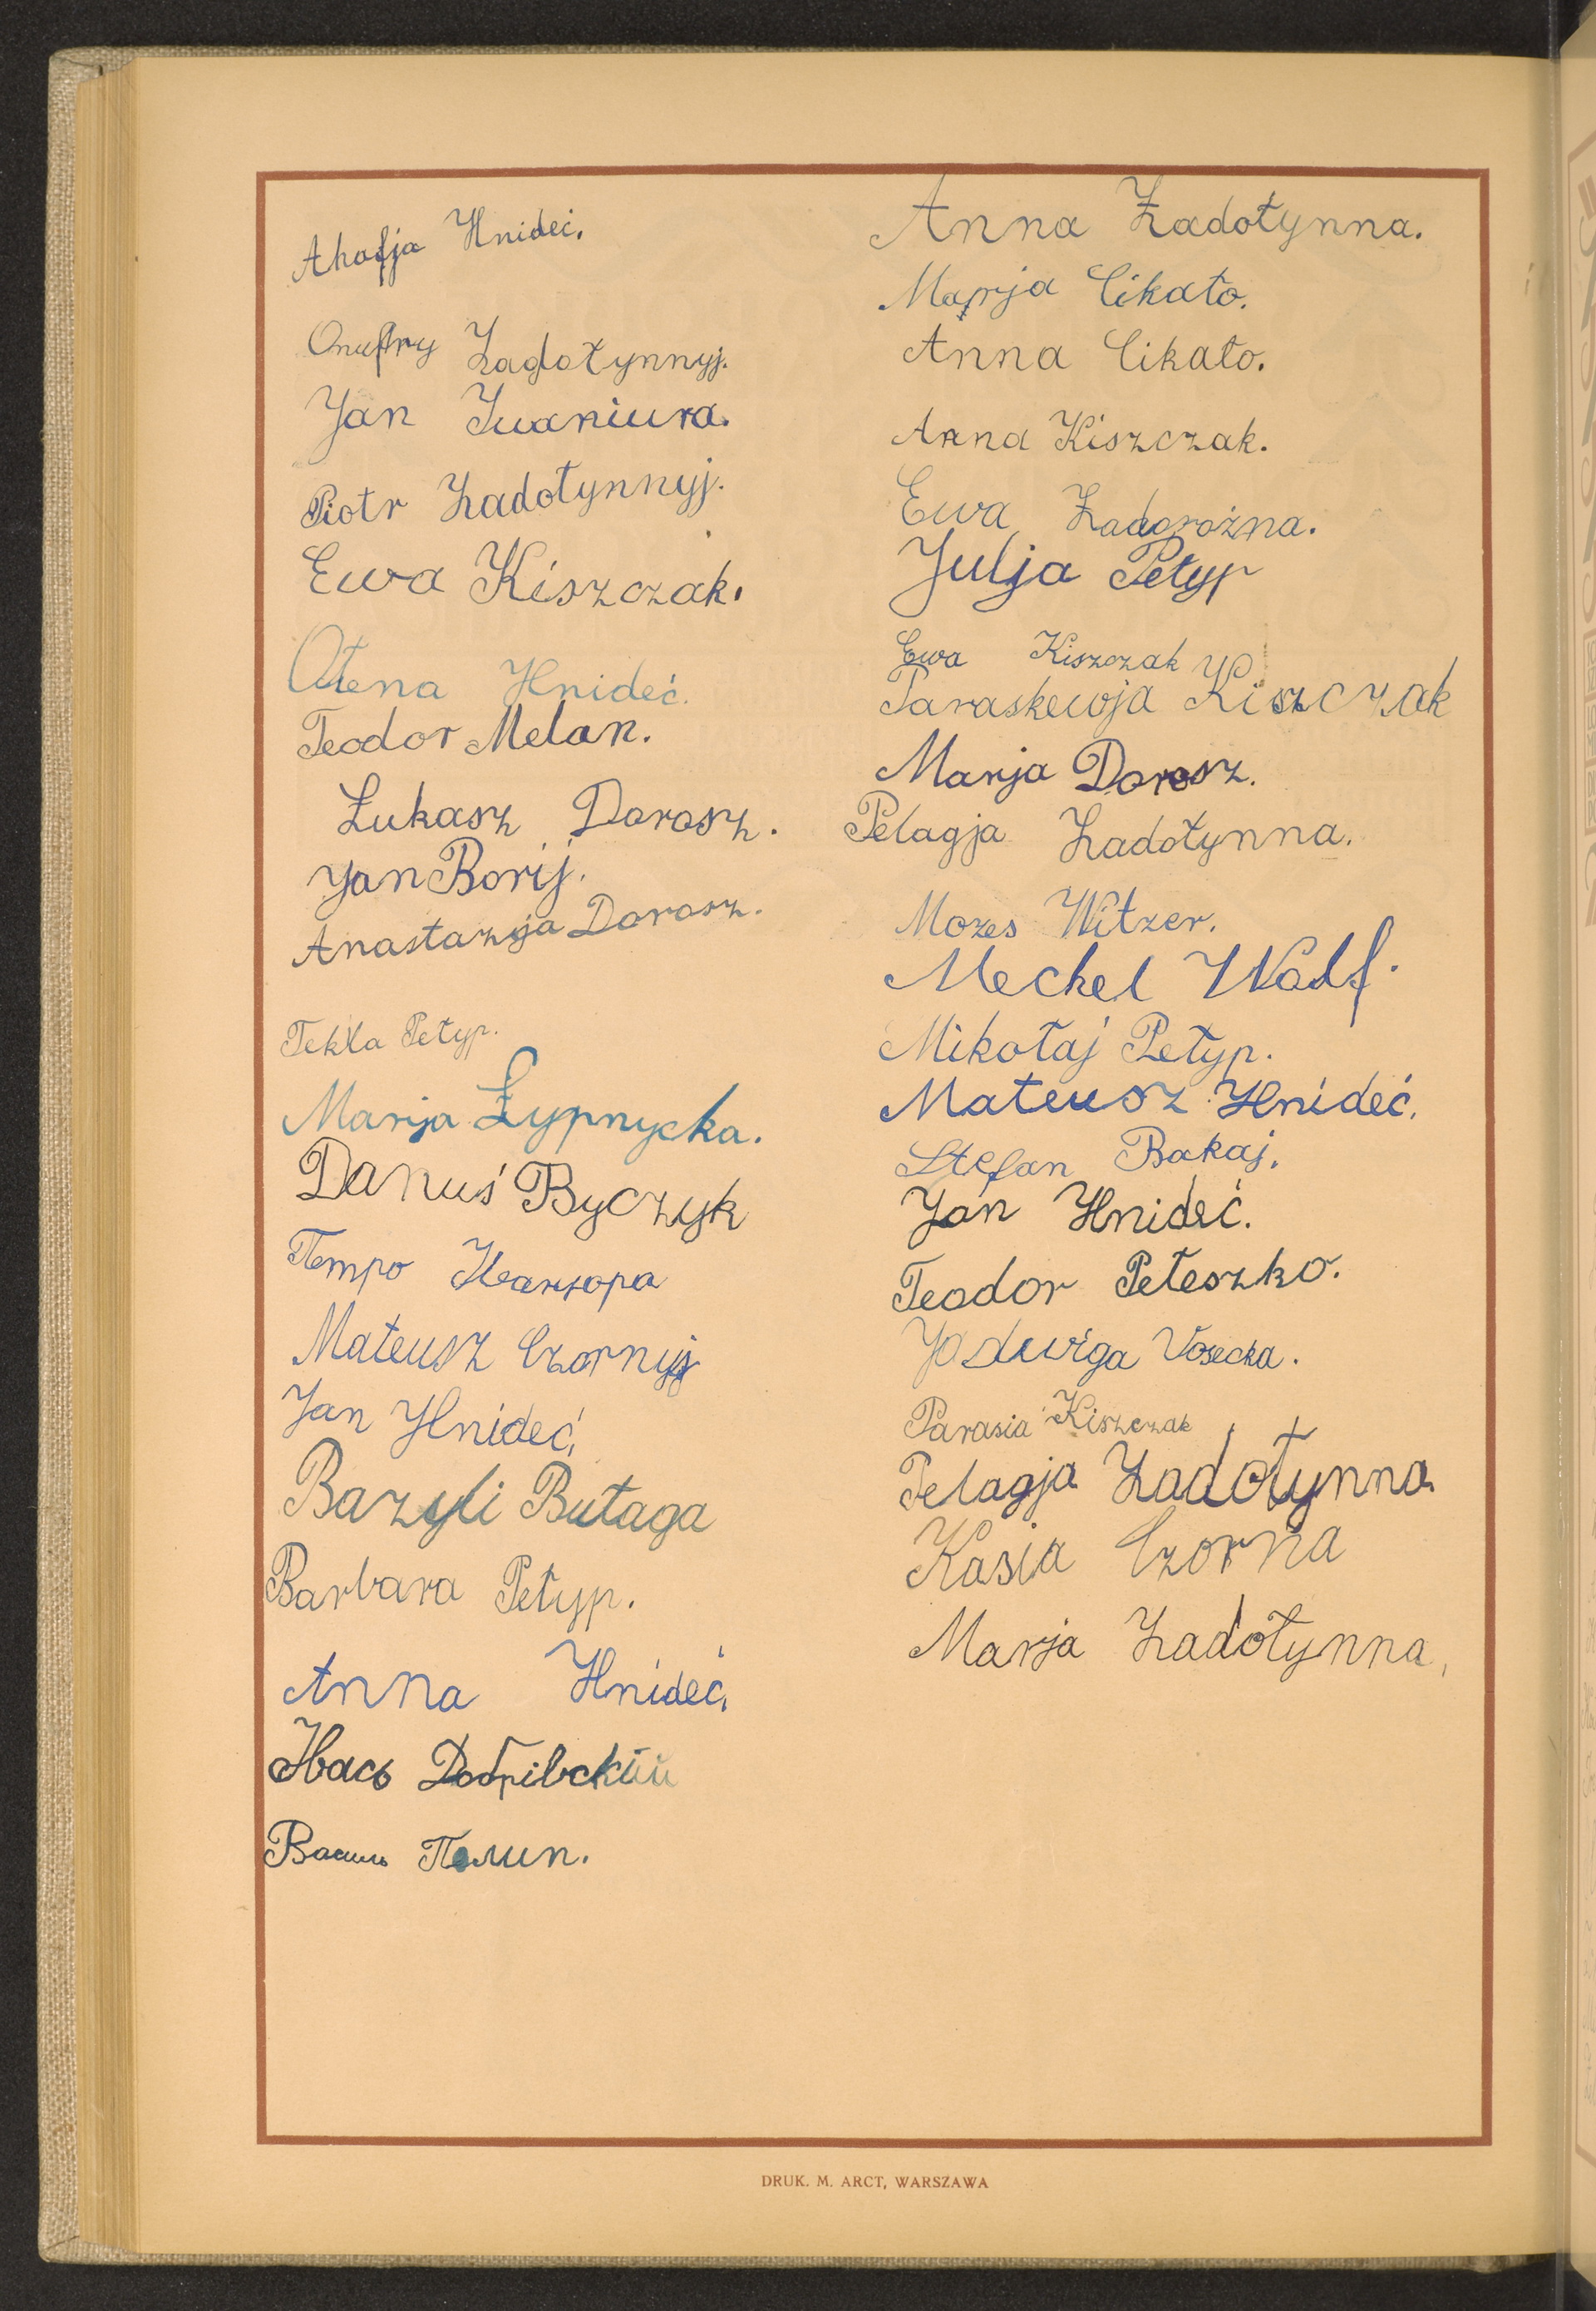 Ahafja Hnideć.
Onufry Zadołynnyj.
Jan Iwaniura.
Piotr Zadołynnyj.
Ewa Kiszczak.
Ołena Hnideć.
Teodor Melan.
Łukasz Dorosz.
Jan Borij.
Anastazyja Dorosz.
Tekla Petyp.
Marja Łypnycka.
Danuś Byczyk
Петро Иванюра
Mateusz Czornyj
Jan Hnideć.
Bazyli Bułaga
Barbara Petyp.
Anna Hnideć.
Ивась
Василь
Anna Zadołynna.
Marja Cikało.
Anna Cikało.
Anna Kiszczak.
Ewa Zadorożna.
Julja Petyp
Ewa Kiszczak
Paraskewja Kiszczak
Marja Dorosz.
Pelagja Zadołynna.
Mozes Witzer.
Mechel Wolf.
Mikołaj Petyp.
Mateusz Hnideć.
Stefan Bakaj.
Jan Hnideć.
Teodor Peteszko.
Jadwiga Vosecka.
Parasia Kiszczak
Pelagja Zadołynna.
Kasia Czorna
Marja Zadołynna,
DRUK. M. ARCT, WARSZAWA